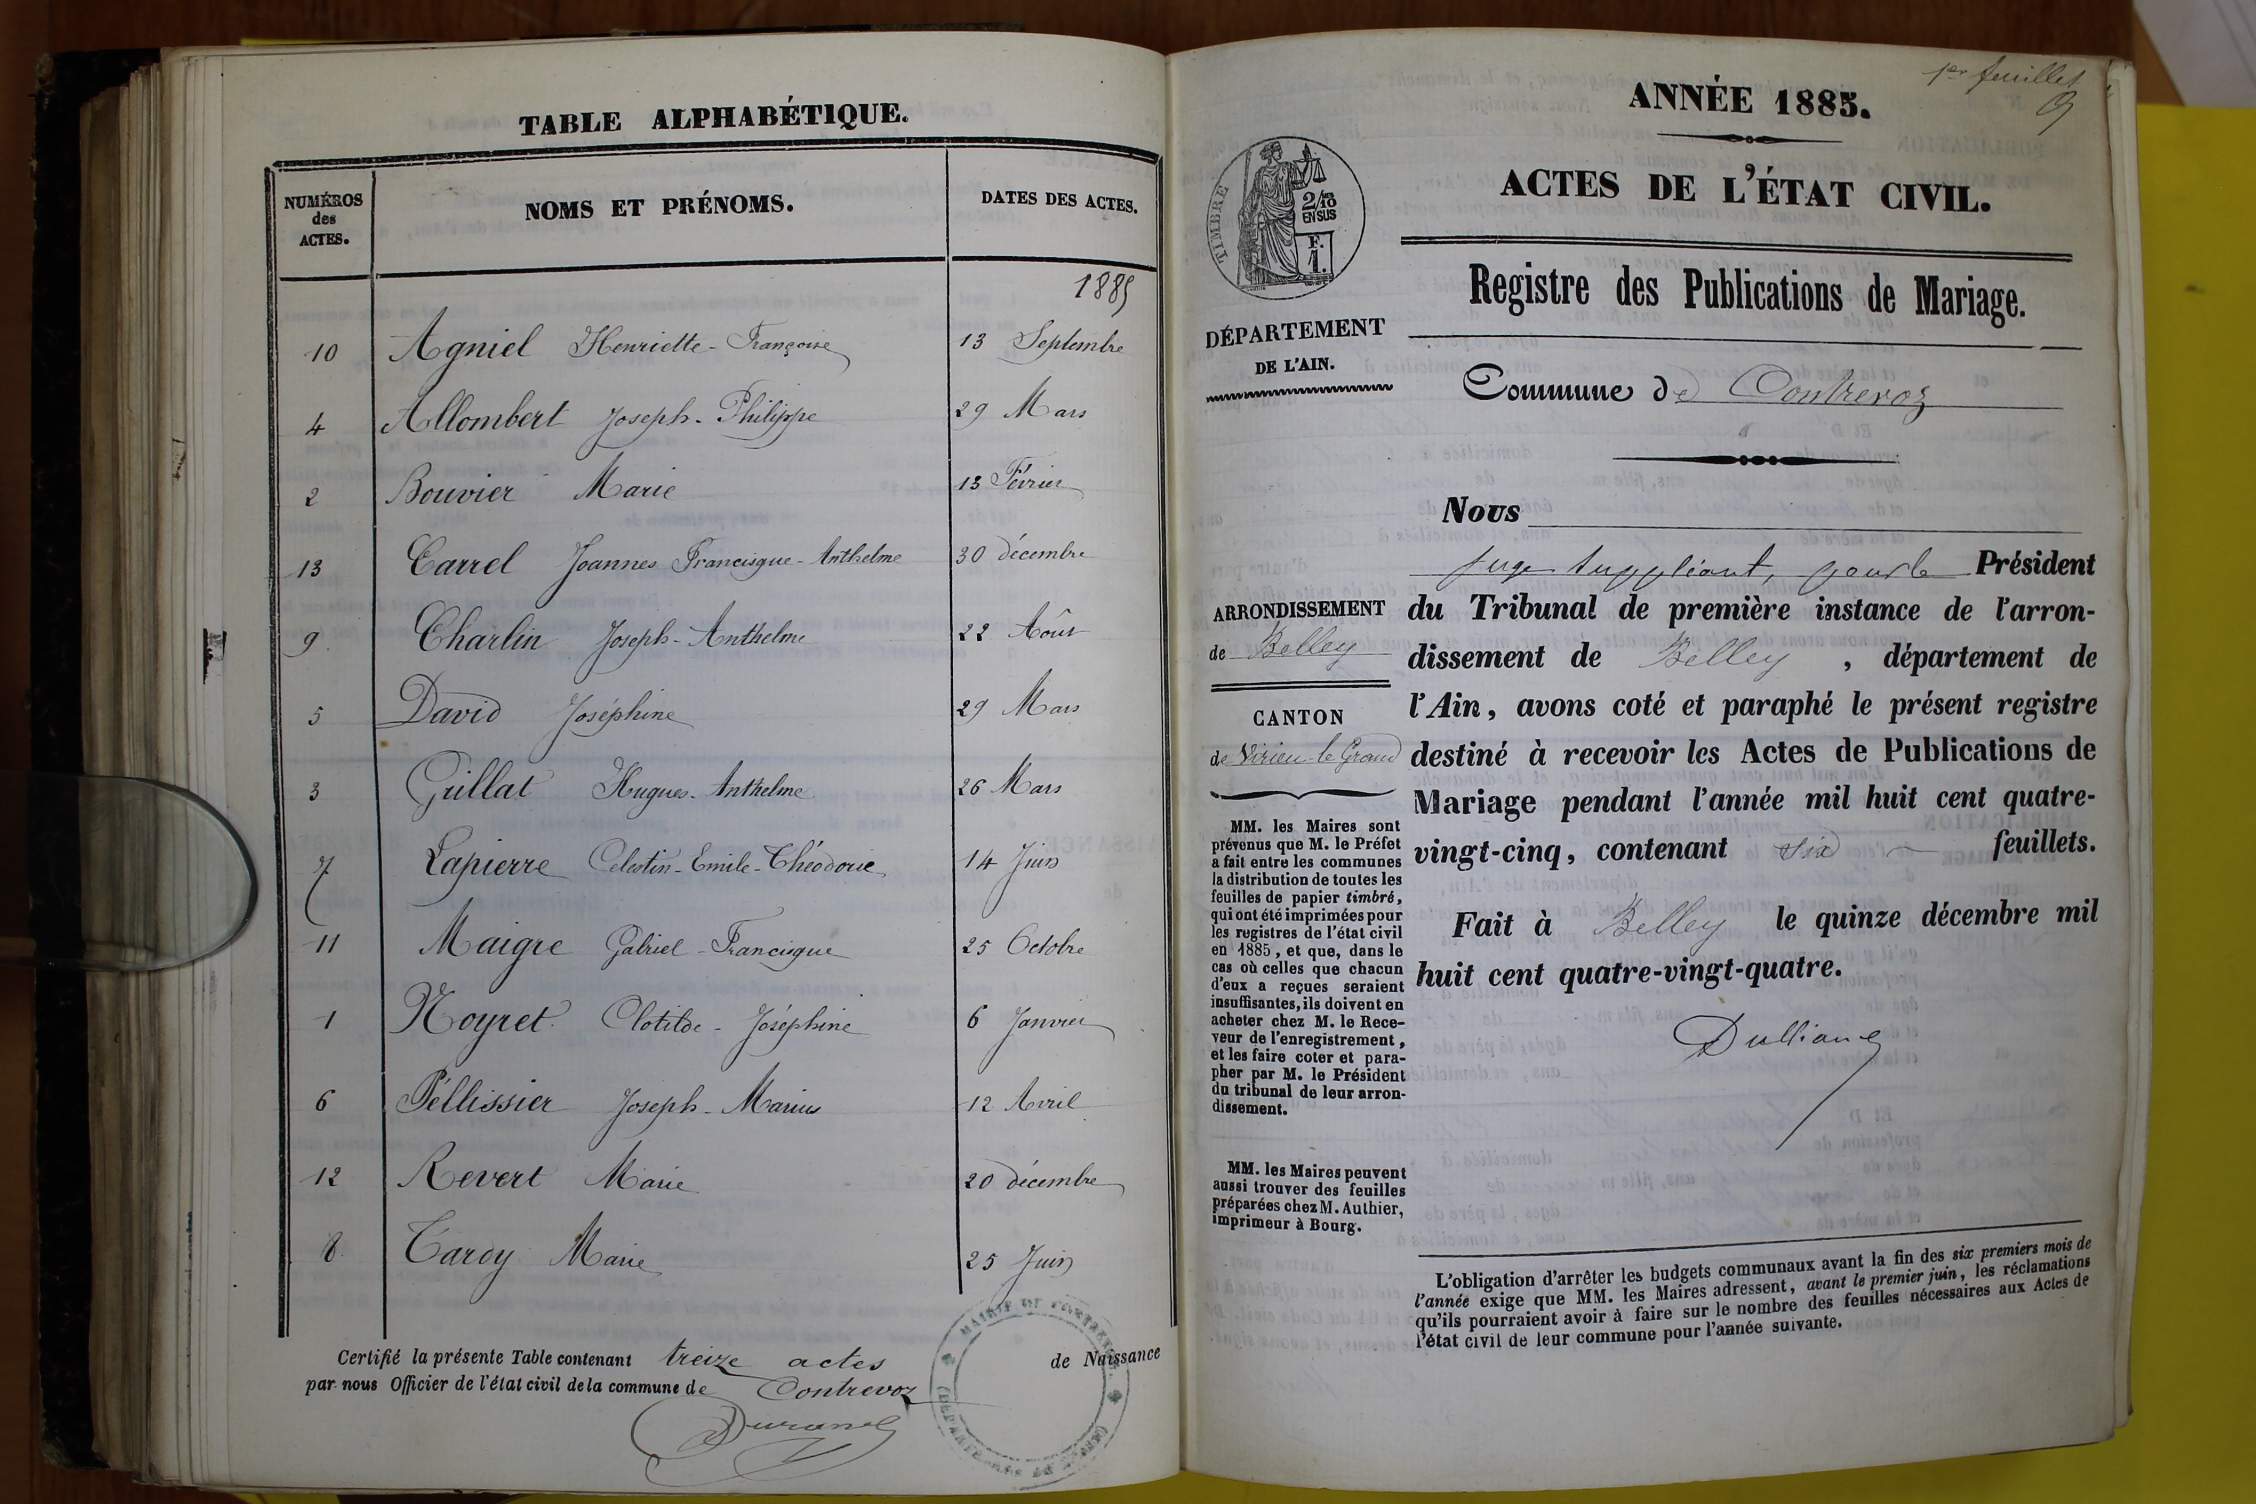 TABLE ALPHABÉTIQUE.
NUMÉROS des ACTES. NOMS ET PRÉNOMS. DATES DES ACTES.
1885
10 Agniel Henriette-Françoise 13 Septembre
4 Allombert Joseph-Philippe 29 Mars
2 Bouvier Marie 13 Février
13 Carrel Joannes Francisque-Anthelme 30 décembre
9 Charlin Joseph-Anthelme 22 Août
5 David Joséphine 29 Mars
3 Guillat Hugues-Anthelme 26 Mars
7 Lapierre Celestin-Emile-Théodore 14 Juin
11 Maigre Gabriel-Francisque 25 Octobre
1 Noyret Clotilde-Joséphine 6 Janvier
6 Péllissier Joseph-Marius 12 Avril
12 Revert Marie 20 décembre
8 Tardy Marie 25 Juin
Certifié la présente Table contenant treize actes de Naissance
par nous Officier de l'état civil de la commune de Contrevoz
MAIRIE DE CONTREVOZ
1er feuillet
ANNÉE 1885.
ACTES DE L'ÉTAT CIVIL.
TIMBRE
2/10
EN SUS
F.
1.
Registre des Publications de Mariage.
DÉPARTEMENT
DE L'AIN.
Commune de Contrevoz
Nous
juge suppléant, pour le Président
du Tribunal de première instance de l'arron-
dissement de Belley, département de
l'Ain, avons coté et paraphé le présent registre
destiné à recevoir les Actes de Publications de
Mariage pendant l'année mil huit cent quatre-
vingt-cinq, contenant six feuillets.
Fait à Belley le quinze décembre mil
huit cent quatre-vingt-quatre.
ARRONDISSEMENT
de Belley
CANTON
de Virieu-le-Grand
MM. les Maires sont
prévenus que M. le Préfet
a fait entre les communes
la distribution de toutes les
feuilles de papier timbré,
qui ont été imprimées pour
les registres de l'état civil
en 1885, et que, dans le
cas où celles que chacun
d'eux a reçues seraient
insuffisantes, ils doivent en
acheter chez M. le Rece-
veur de l'enregistrement,
et les faire coter et para-
pher par M. le Président
du tribunal de leur arron-
dissement.
MM. les Maires peuvent
aussi trouver des feuilles
préparées chez M. Authier,
imprimeur à Bourg.
L'obligation d'arrêter les budgets communaux avant la fin des six premiers mois de
l'année exige que MM. les Maires adressent, avant le premier juin, les réclamations
qu'ils pourraient avoir à faire sur le nombre des feuilles nécessaires aux Actes de
l'état civil de leur commune pour l'année suivante.